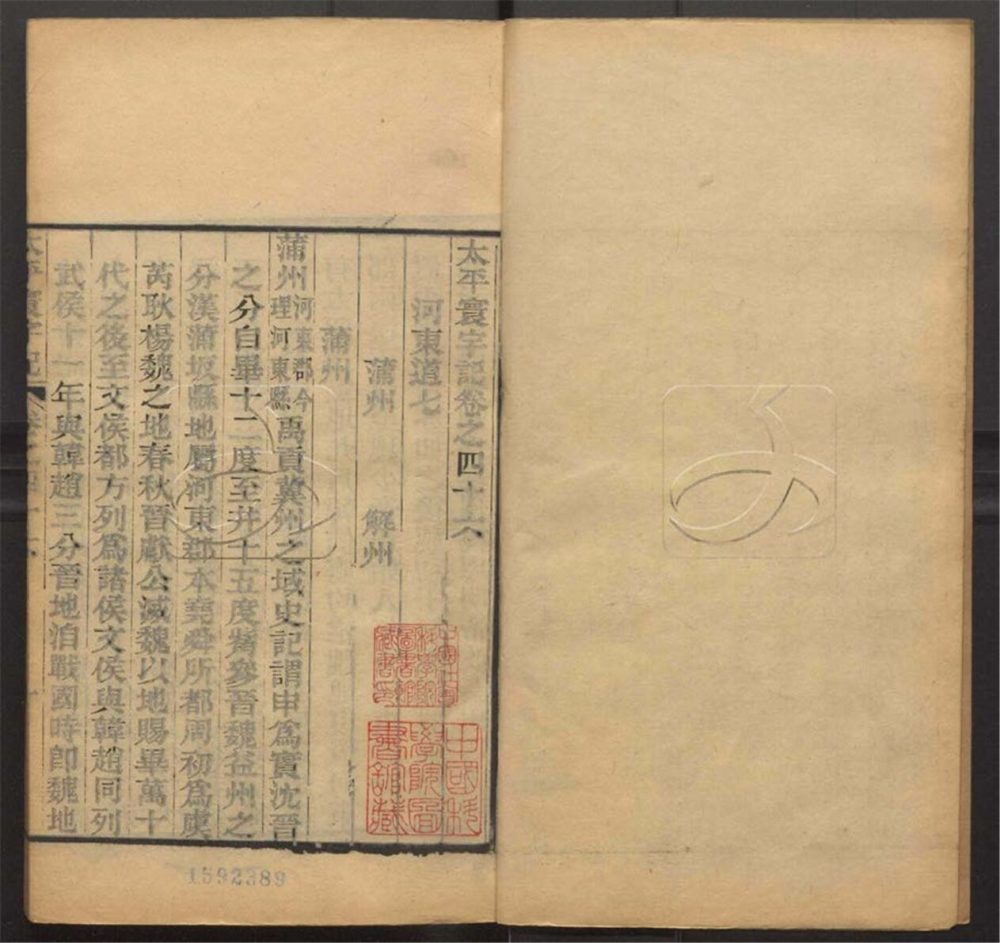 太平寰宇記卷之四十六
河東道七
蒲州 解州
蒲州
蒲州河東郡今理河東縣禹貢冀州之域史記謂申爲實沈晉
之分自畢十二度至井十五度觜參晉魏益州之
分漢蒲坂縣地屬河東郡本堯舜所都周初爲虞
芮耿楊魏之地春秋晉獻公滅魏以地賜畢萬十
代之後至文侯都方列爲諸侯文侯與韓趙同列
武侯十一年與韓趙三分晉地洎戰國時卽魏地
太平寰宇記 卷之四十六
中國科學院圖書館藏
1592389